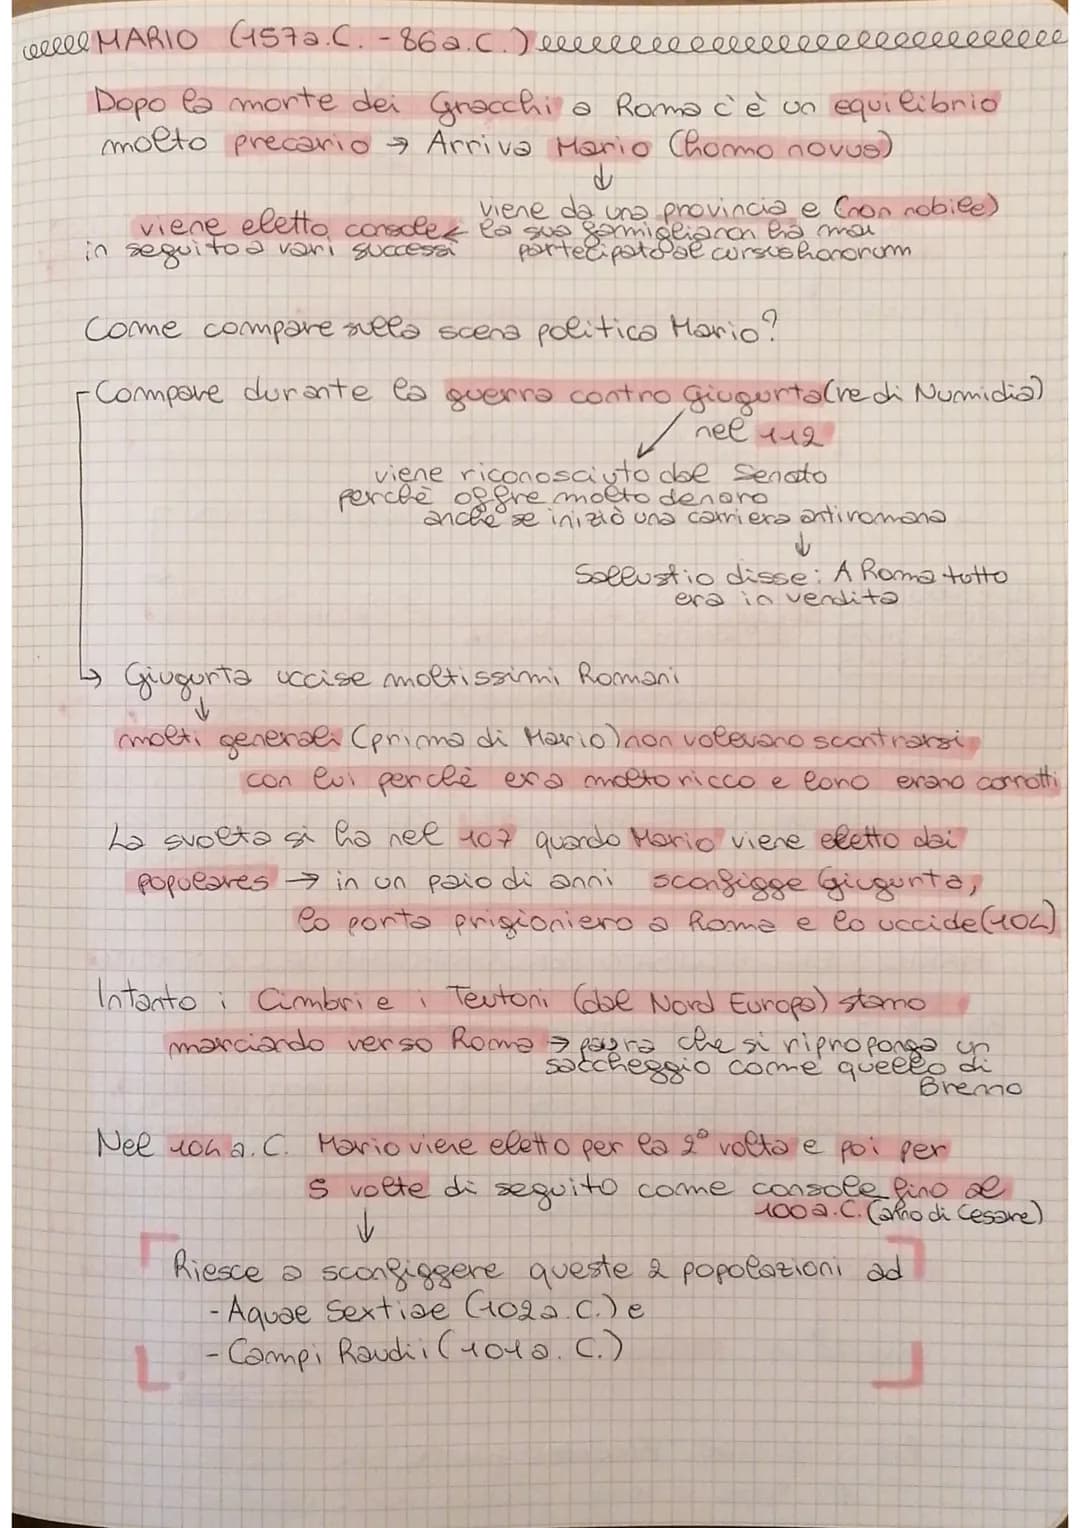 MARIO (157a.C. - 86a.C.)
Dopo la morte dei Gracchi a Roma c'è un equilibrio
molto precario → Arriva Mario (homo novus)
↓
viene da una provincia e (non nobile)
viene eletto console ← la sua famiglia non ha mai
in seguito a vari successi partecipato al cursus honorum
Come compare sulla scena politica Mario?
Compare durante la guerra contro Giugurta (re di Numidia)
nel 112
viene riconosciuto dal Senato
perchè offre molto denaro
anche se iniziò una carriera antiromana
↓
Sallustio disse: A Roma tutto
era in vendita
↳ Giugurta uccise moltissimi Romani
↓
molti generali (prima di Mario) non volevano scontrarsi
con lui perchè era molto ricco e loro erano corrotti
La svolta si ha nel 107 quando Mario viene eletto dai
populares → in un paio di anni sconfigge Giugurta,
lo porta prigioniero a Roma e lo uccide (104)
Intanto i Cimbri e i Teutoni (dal Nord Europa) stanno
marciando verso Roma → paura che si riproponga un
saccheggio come quello di
Brenno
Nel 104 a.C. Mario viene eletto per la 2° volta e poi per
5 volte di seguito come console fino al
100 a.C. (anno di Cesare)
↓
Riesce a sconfiggere queste 2 popolazioni ad
- Aquae Sextiae (102a.C.) e
- Campi Raudii (101a.C.)